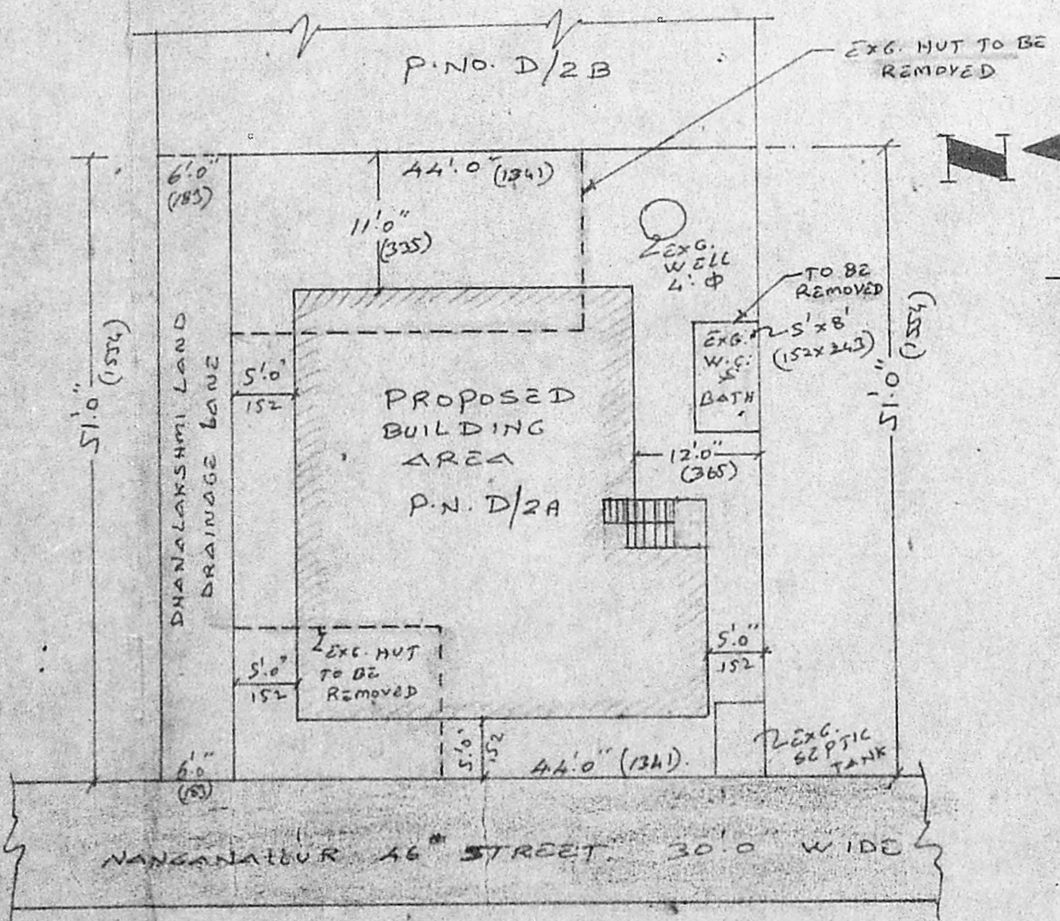 P.NO. D/2B
EXG. HUT TO BE
REMOVED
N
6'.0"
(183)
44'.0" (1341)
11'.0"
(335)
EXG.
WELL
4'. Φ
TO BE
REMOVED
5' x 8'
(152x243)
EXG.
W.C.
&
BATH
51'.0" (1554)
51'.0" (1554)
DHANALAKSHMI LAND
DRAINAGE LANE
5'.0"
152
PROPOSED
BUILDING
AREA
P.N. D/2A
12'.0"
(365)
EXG. HUT
TO BE
REMOVED
5'.0"
152
5'.0"
152
5'.0"
152
44'.0" (1341).
EXG.
SEPTIC
TANK
6'.0"
(183)
NANGANALLUR 46th STREET. 30'.0 WIDE